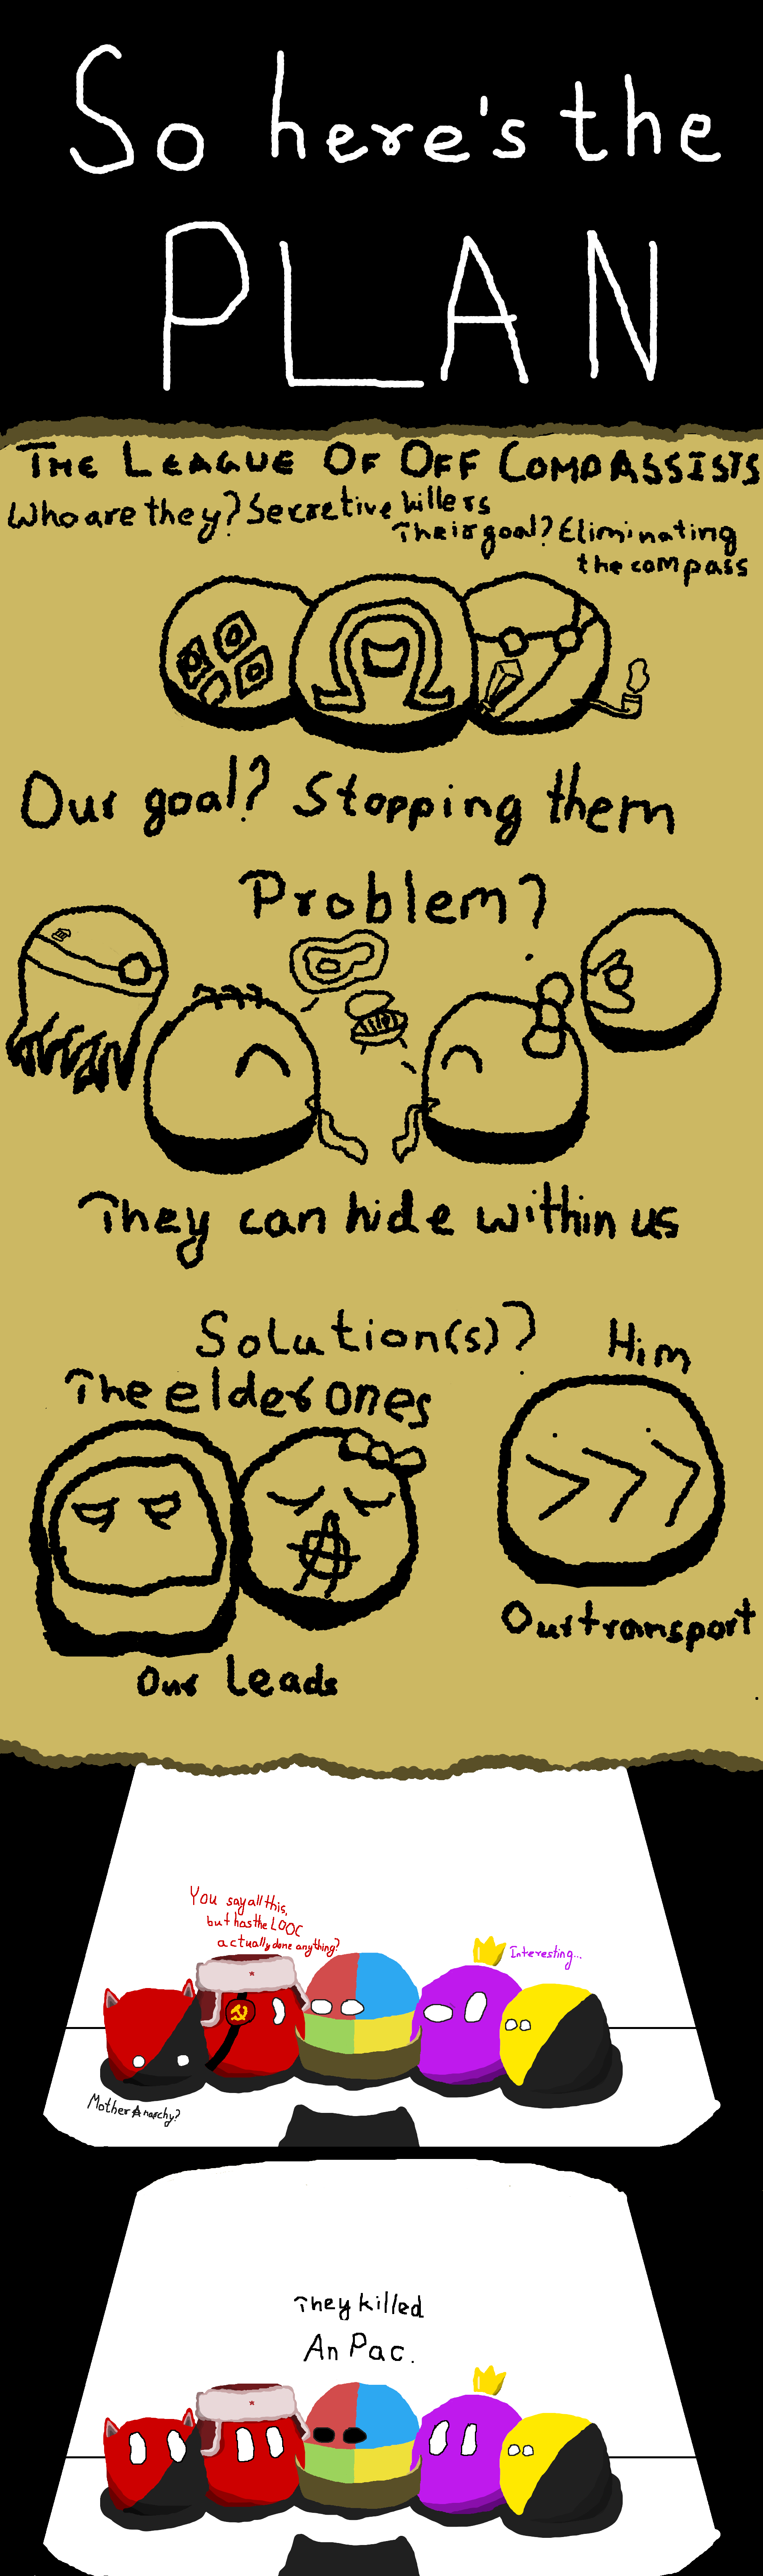 So here's the
PLAN
THE LEAGUE OF OFF COMPASSISTS
Who are they? Secretive killers
Their goal? Eliminating
the compass
Our goal? Stopping them
Problem?
They can hide within us
Solution(s)?
Him
The elder ones
Our transport
Our Leads
You say all this,
but has the LOOC
actually done anything?
Interesting...
Mother Anarchy?
They killed
An Pac.